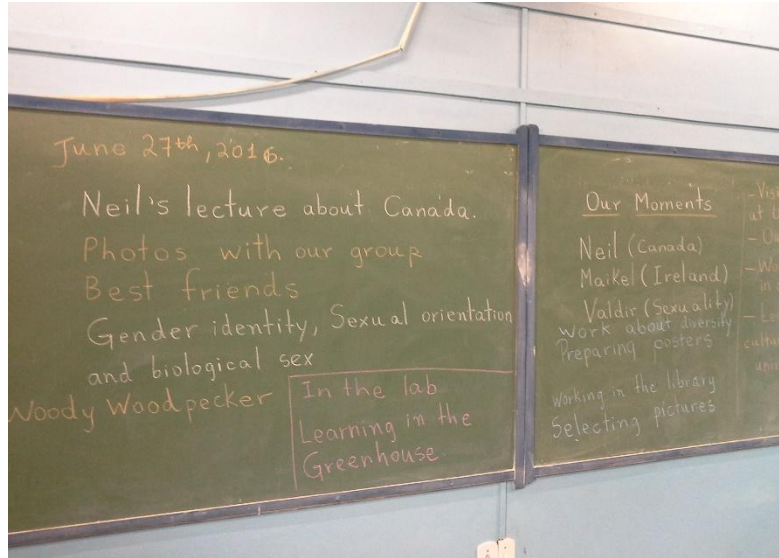 June 27th, 2016.
Neil's lecture about Canada.
Photos with our group
Best friends
Gender identity, Sexual orientation
and biological sex
Woody Woodpecker
In the lab
Learning in the
Greenhouse
Our Moments
Neil (Canada)
Maikel (Ireland)
Valdir (Sexuality)
work about diversity
Preparing posters
working in the library
Selecting pictures
at
in